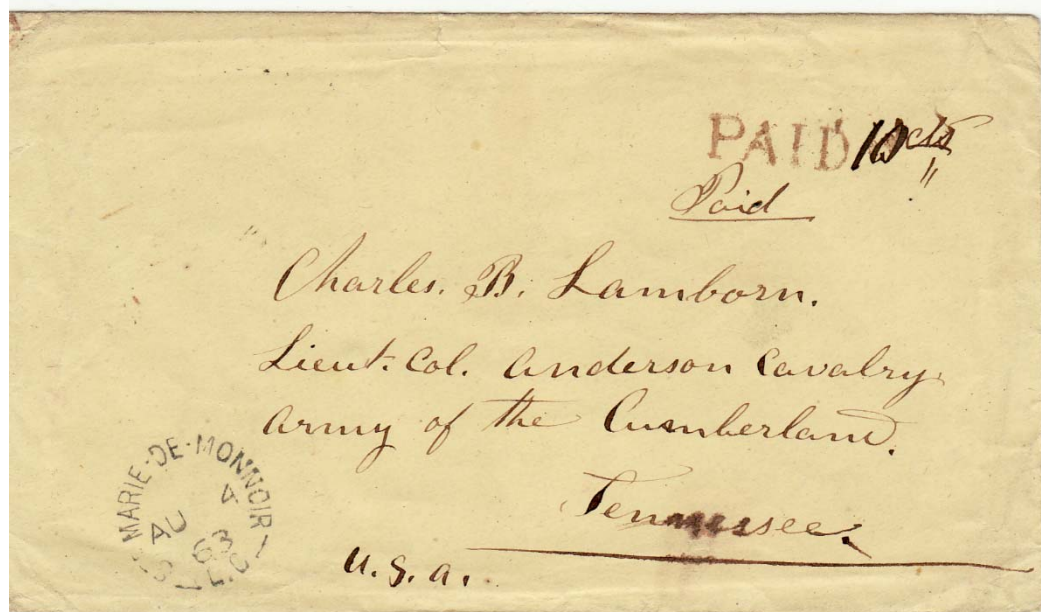 PAID 10 cts
Paid
Charles. B. Lamborn.
Lieut. Col. Anderson Cavalry.
Army of the Cumberland.
Tennessee.
U.S.A.
S--MARIE-DE-MONNOIR-L.C
AU
63